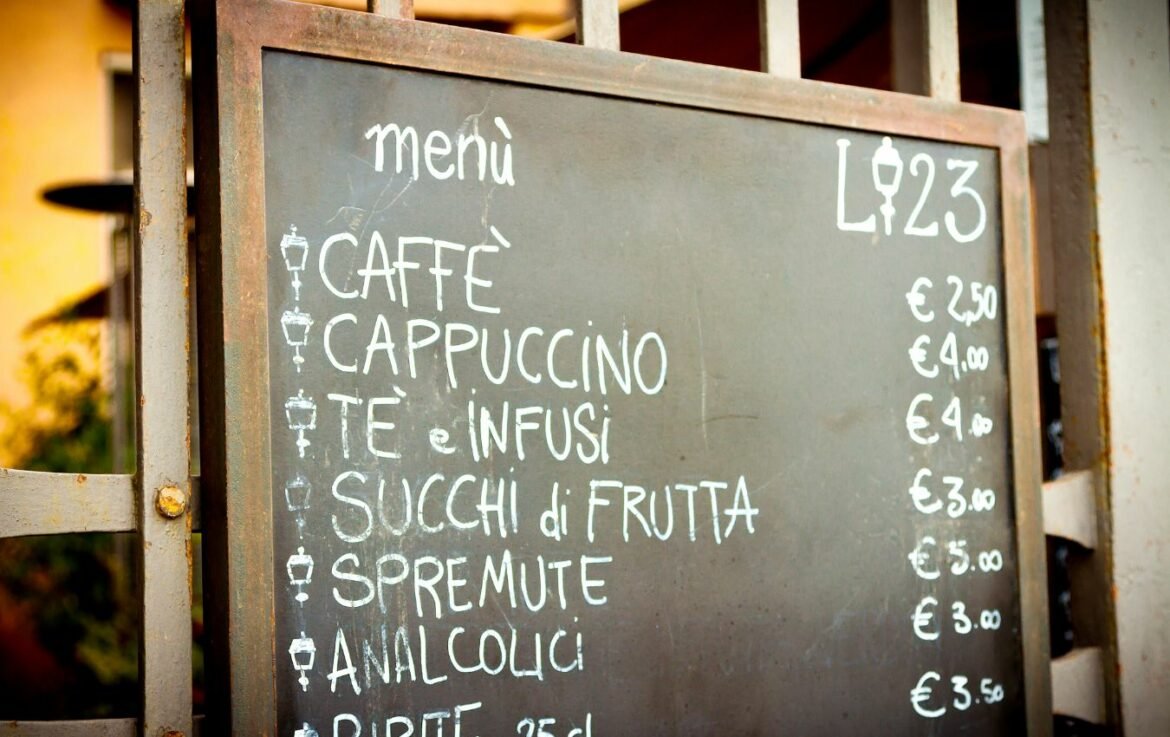 menù L 23
CAFFÈ € 2,50
CAPPUCCINO € 4.00
TÈ e INFUSI € 4.00
SUCCHI di FRUTTA € 3.00
SPREMUTE € 5.00
ANALCOLICI € 3.00
BIBITE 25 cl € 3.50